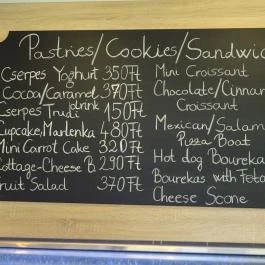 Pastries/Cookies/Sandwic
Cserpes Yoghrt 350Ft
Cocoa/Caramel drink 370Ft
Cserpes Tradi 150Ft
Cupcake, Marlenka 480Ft
Mini Carrot Cake 320Ft
Cottage-Cheese B. 290Ft
Fruit Salad 370Ft
Mini Croissant
Chocolate/Cinnam
Croissant
Mexican/Salam
Pizza Boat
Hot dog Bourekas
Bourekas with Feta
Cheese Scone